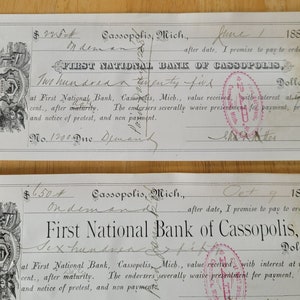 $ 225.00 Cassopolis, Mich., June 1 188
On demand after date, I promise to pay to ord
FIRST NATIONAL BANK OF CASSOPOLIS,
Two hundred & twenty five Doll
at First National Bank, Cassopolis, Mich., value received, with interest at
cent., after maturity. The endorsers severally waive presentment for payment,
and notice of protest, and non payment.
No. 1300 Due Demand
$ 650.00 Cassopolis, Mich., Oct 9 18
On demand after date, I promise to pay to or
First National Bank of Cassopolis,
Six hundred & fifty Dol
at First National Bank, Cassopolis, Mich., value received, with interest at
cent., after maturity. The endorsers severally waive presentment for payment,
and notice of protest, and non payment.